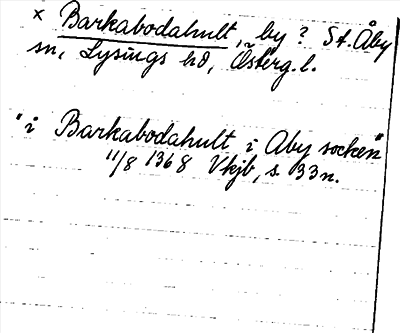 × Barkabodahult, by? St. Åby
sn, Lysings hd, Österg.l.
"i Barkabodahult i Aby socken"
11/8 1368 Vkjb, s. 33n.